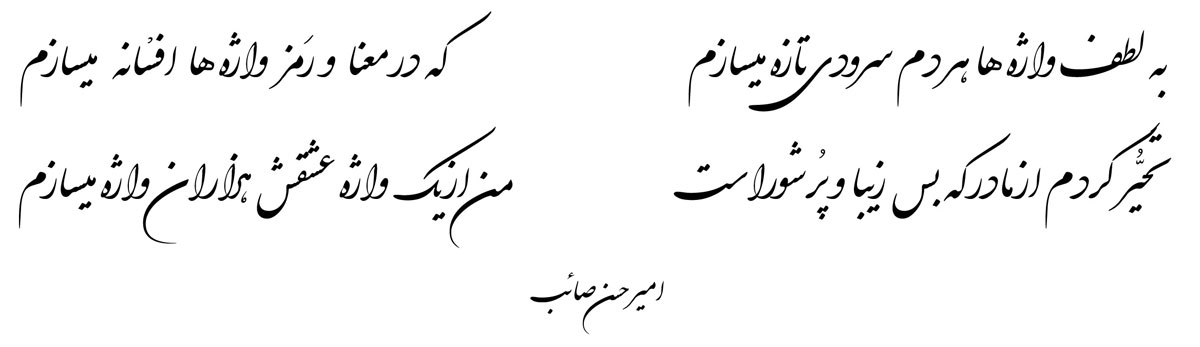 به لطف واژه ها هر دم سرودی تازه میسازم
که در معنا و رَمز واژه ها افسْانه میسازم
تحیُّر کردم از مادر که بس زیبا و پُر شور است
من از یک واژه عشقش هزاران واژه میسازم
امیر حسن صائب